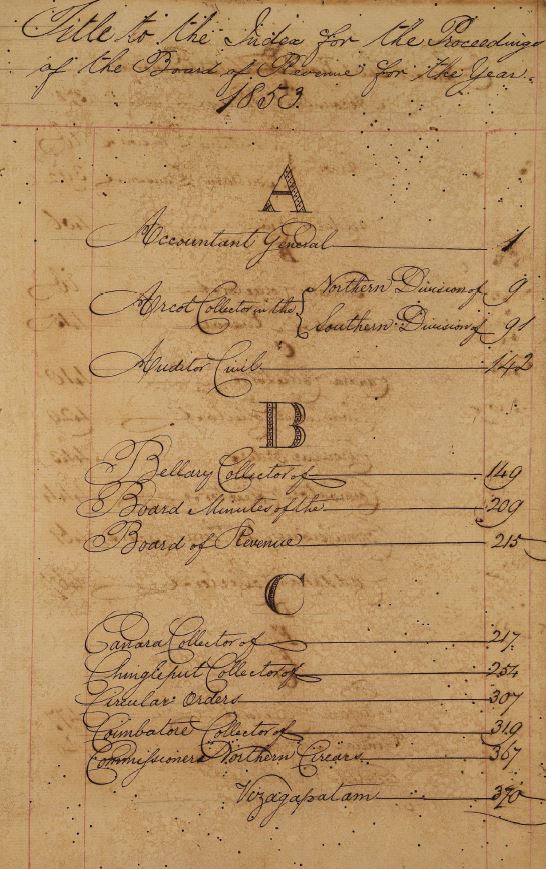 Title to the Index for the Proceedings
of the Board of Revenue for the Year
1853.
A
Accountant General 1
Arcot Collector in the { Northern Division of 9
Southern Division of 91
Auditor Civil 142
B
Bellary Collector of 149
Board Minutes of the 209
Board of Revenue 215
C
Canara Collector of 217
Chingleput Collector of 254
Circular Orders 307
Coimbatore Collector of 319
Commissioners Northern Circars 367
Vizagapatam 370